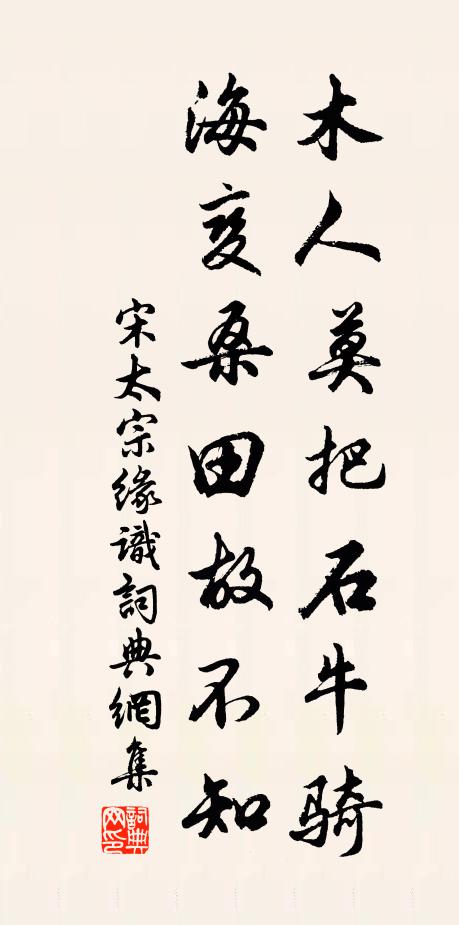 木人莫把石牛骑
海变桑田故不知
宋太宗缘識詞典網集
詞典網印